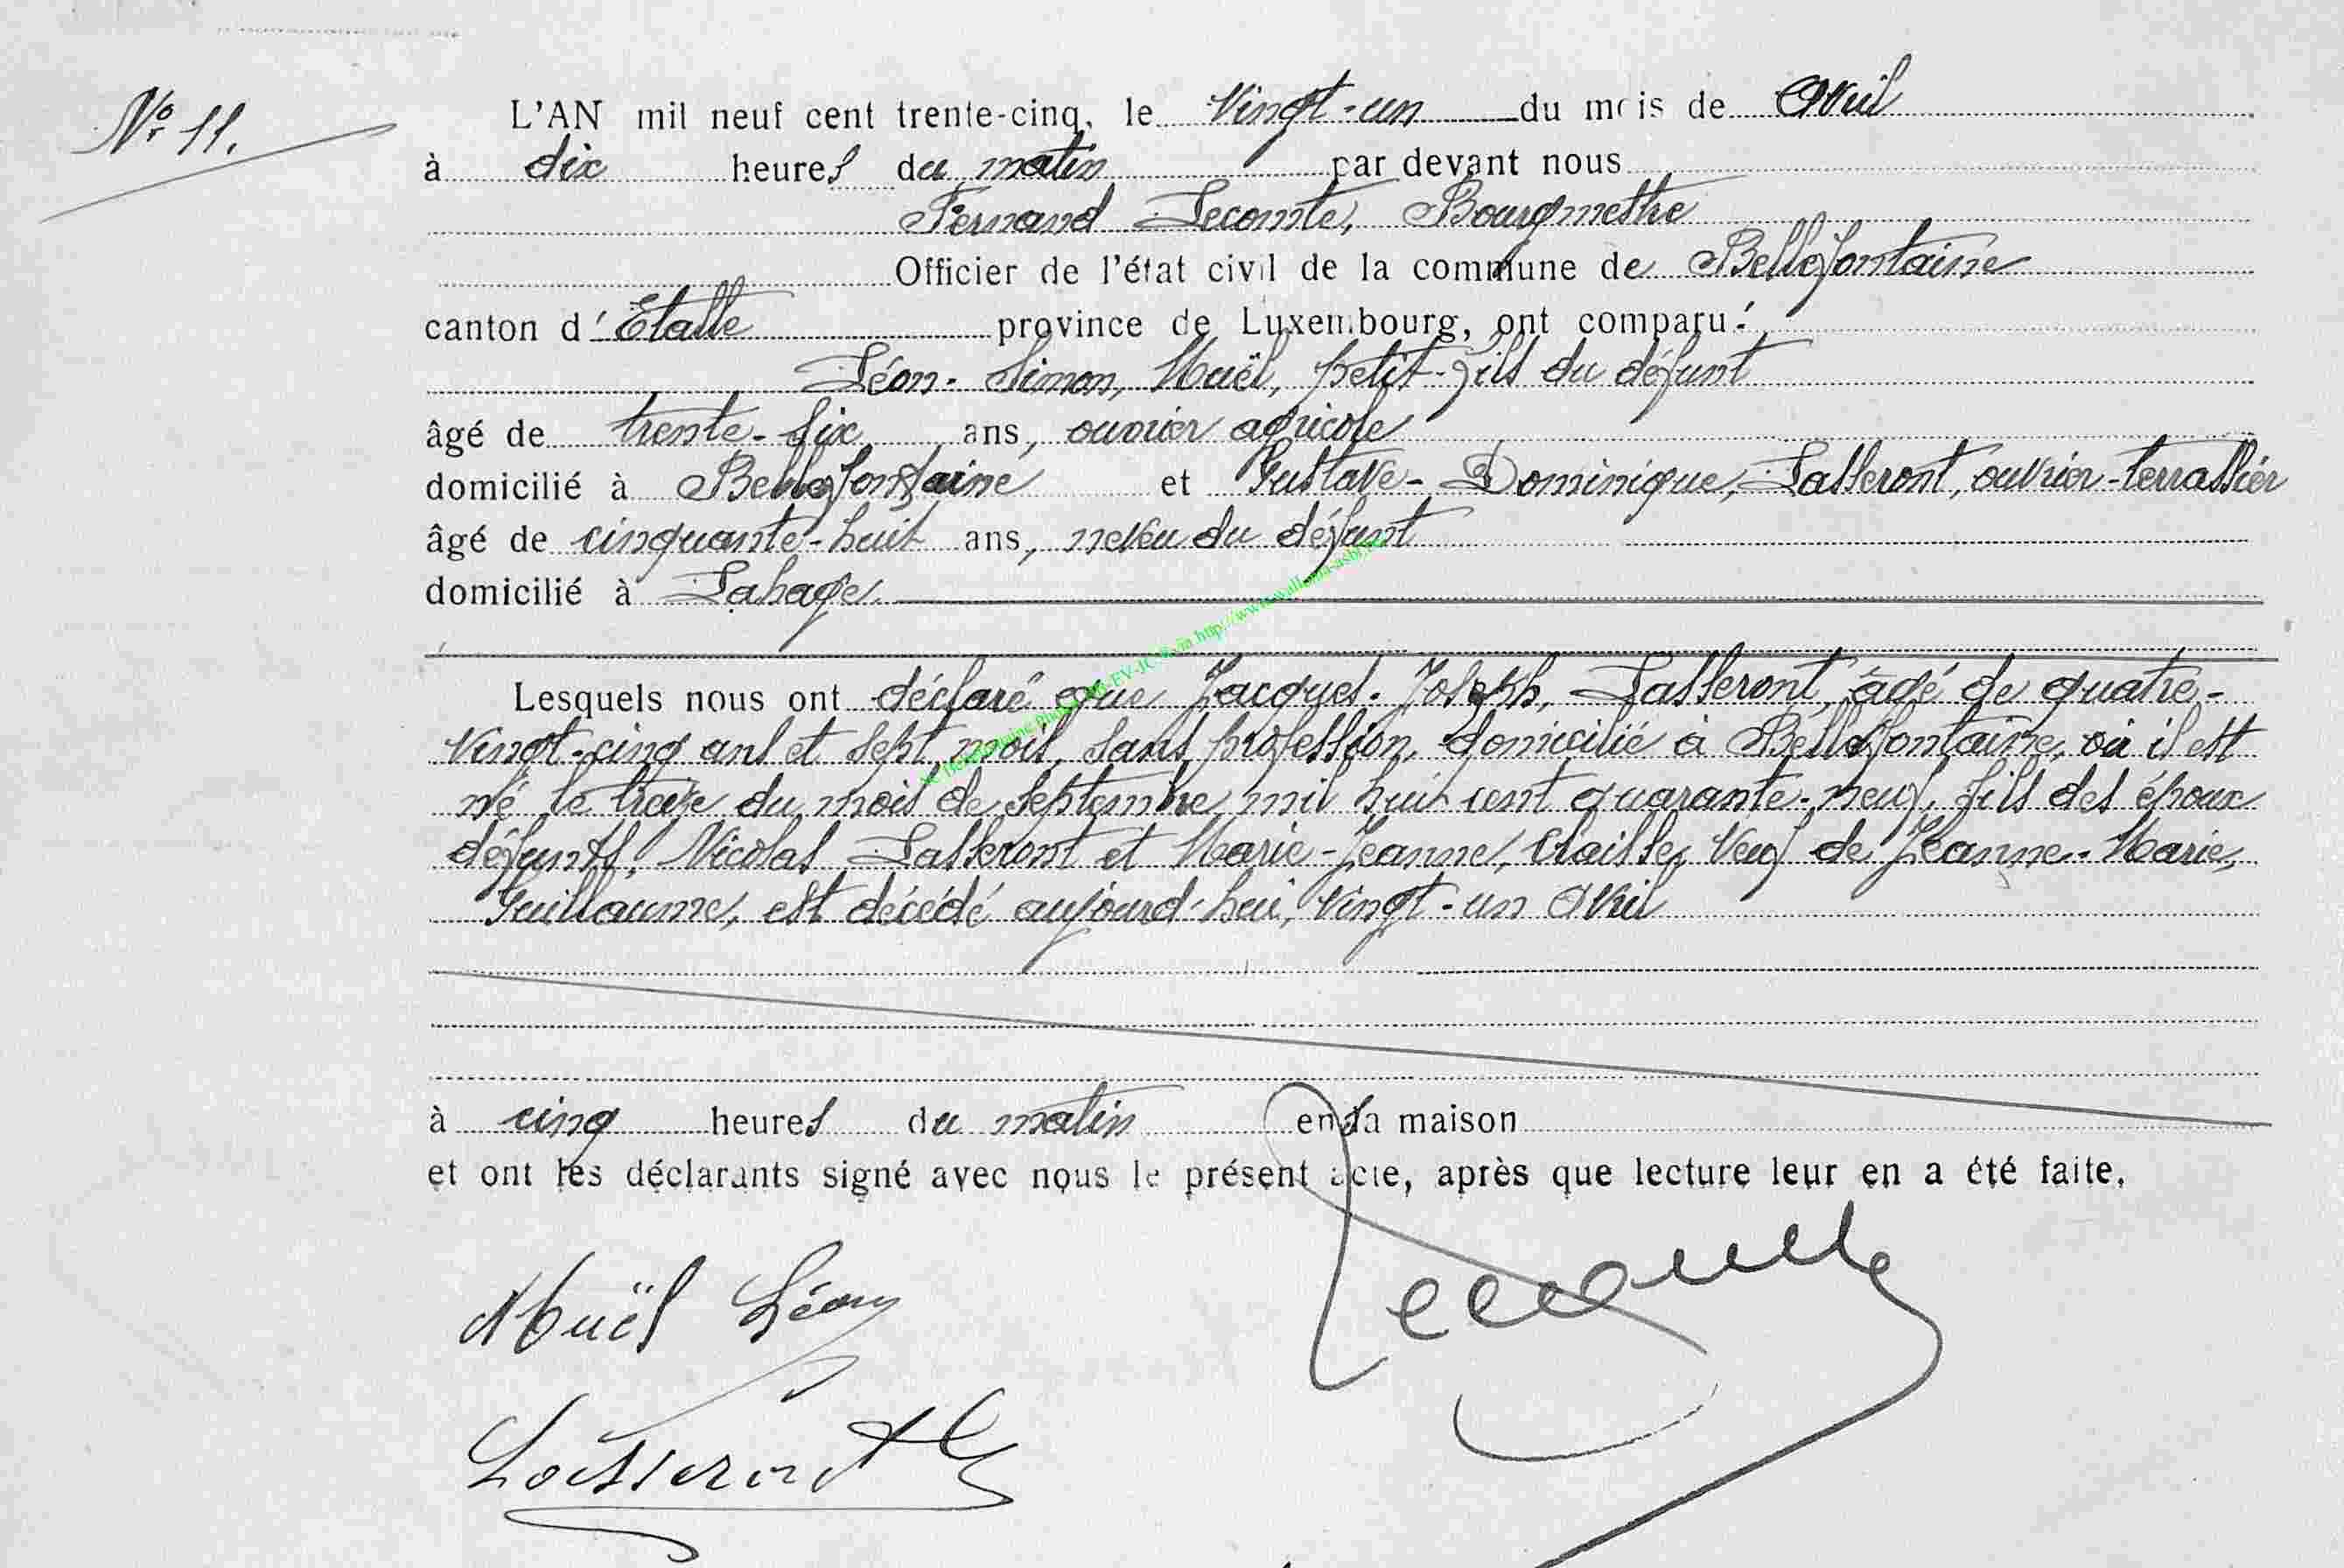 N° 11.
L'AN mil neuf cent trente-cinq, le vingt-un du mois de Avril
à dix heures du matin par devant nous
Fernand Lecomte, Bourgmestre
Officier de l'état civil de la commune de Bellefontaine
canton d'Etalle province de Luxembourg, ont comparu:
Léon-Simon, Muël, petit-fils du défunt
âgé de trente-six ans, ouvrier agricole
domicilié à Bellefontaine et Gustave-Dominique, Lasseront, ouvrier-terrassier
âgé de cinquante-huit ans, neveu du défunt
domicilié à Lahage.
Lesquels nous ont déclaré que Jacques-Joseph, Lasseront, âgé de quatre-
vingt-cinq ans et sept mois, sans profession, domicilié à Bellefontaine, où il est
né le treize du mois de Septembre mil huit cent quarante-neuf, fils des époux
défunts, Nicolas Lasseront et Marie-Jeanne, Claisse, veuf de Jeanne-Marie,
Guillaume, est décédé aujourd'hui, vingt-un Avril
à cinq heures du matin en sa maison
et ont les déclarants signé avec nous le présent acte, après que lecture leur en a été faite.
Muël Léon
Lasseront G
Lecomte